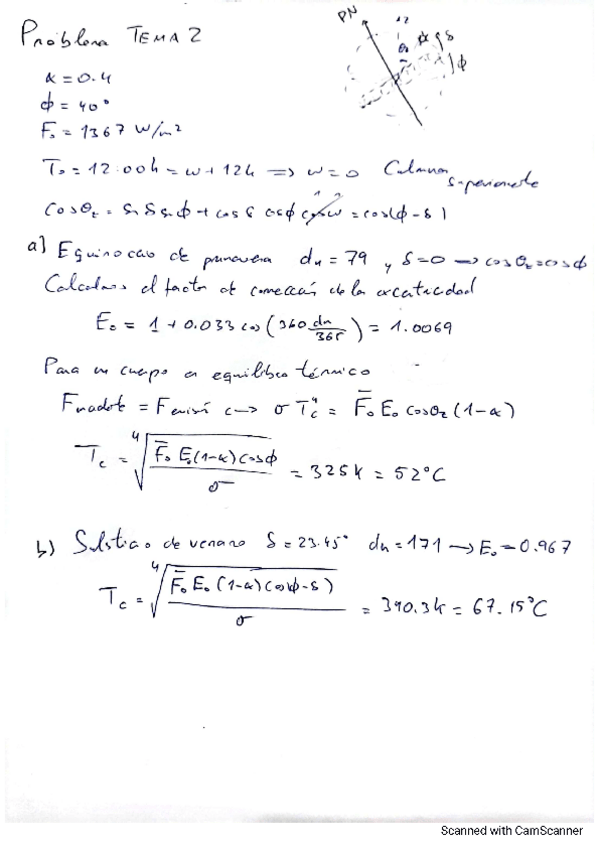 Problema TEMA 2
PN
θz
α
δ
ϕ
α = 0.4
ϕ = 40°
F₀ = 1367 W/m²
T₀ = 12:00h = w + 12h ⟹ w = 0 superiormente
cosθz = sin δ sin ϕ + cos δ cos ϕ cos w = cos(ϕ - δ)
a) Equinoccio de primavera dn = 79 y δ = 0 → cosθz = cos ϕ
Calculamos el factor de corrección de la excentricidad
E₀ = 1 + 0.033 cos (360 dn/365) = 1.0069
Para un cuerpo en equilibrio térmico
F = F ↔ σ Tc⁴ = F̄₀ E₀ cosθz (1-α)
Tc = ⁴√(F̄₀ E₀(1-α) cos ϕ / σ) = 325 K = 52°C
b) Solsticio de verano δ = 23.45° dn = 171 → E₀ = 0.967
Tc = ⁴√(F̄₀ E₀ (1-α) cos(ϕ-δ) / σ) = 340.3 K = 67.15°C
Scanned with CamScanner